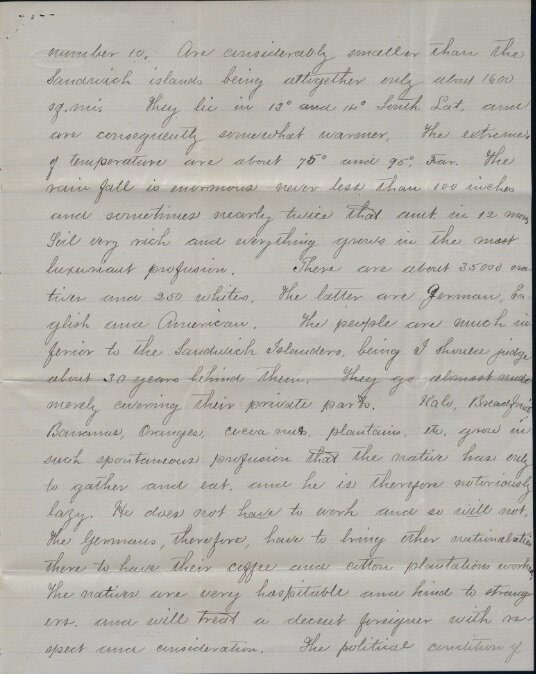 number 10. Are considerably smaller than the
Sandwich islands being altogether only about 1600
sq. mi. They lie in 13° and 14° South Lat. and
are consequently somewhat warmer. The extremes
of temperature are about 75° and 95° Far. The
rain fall is enormous never less than 100 inches
and sometimes nearly twice that amt. in 12 mos.
Soil very rich and everything grows in the most
luxuriant profusion. There are about 35000 na
tives and 250 whites. The latter are German, En
glish and American. The people are much in
ferior to the Sandwich Islanders, being I should judge
about 30 years behind them. They go almost nude
merely covering their private parts. Kalo, Breadfruit
Bananas, Oranges, cocoa nuts, plantains, etc. grow in
such spontaneous profusion that the native has only
to gather and eat, and he is therefore notoriously
lazy. He does not have to work and so will not.
The Germans, therefore, have to bring other nationalities
there to have their coffee and cotton plantations worked.
The natives are very hospitable and kind to strang
ers. and will treat a decent foreigner with re
spect and consideration. The political condition of